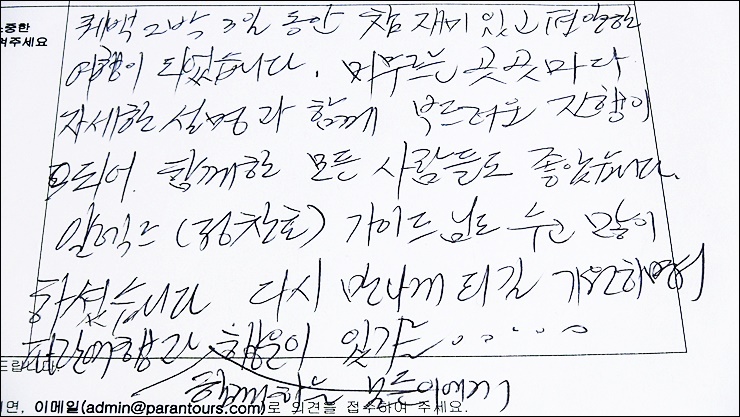 소중한
퀘벡 2박 3일 동안 참 재미 있고 편안한
겨주세요
여행이 되었습니다. 머무르는 곳곳마다
자세한 설명과 함께 부드러운 진행이
되어 함께한 모든 사람들도 좋았습니다.
알렉스 (정찬호) 가이드님도 수고 많이
하셨습니다 다시 만나게 되길 기원하며
파란여행과 행운이 있기를
드립니다.
함께 하는 모든이에게
이메일(admin@parantours.com)로 의견을 접수하여 주세요.